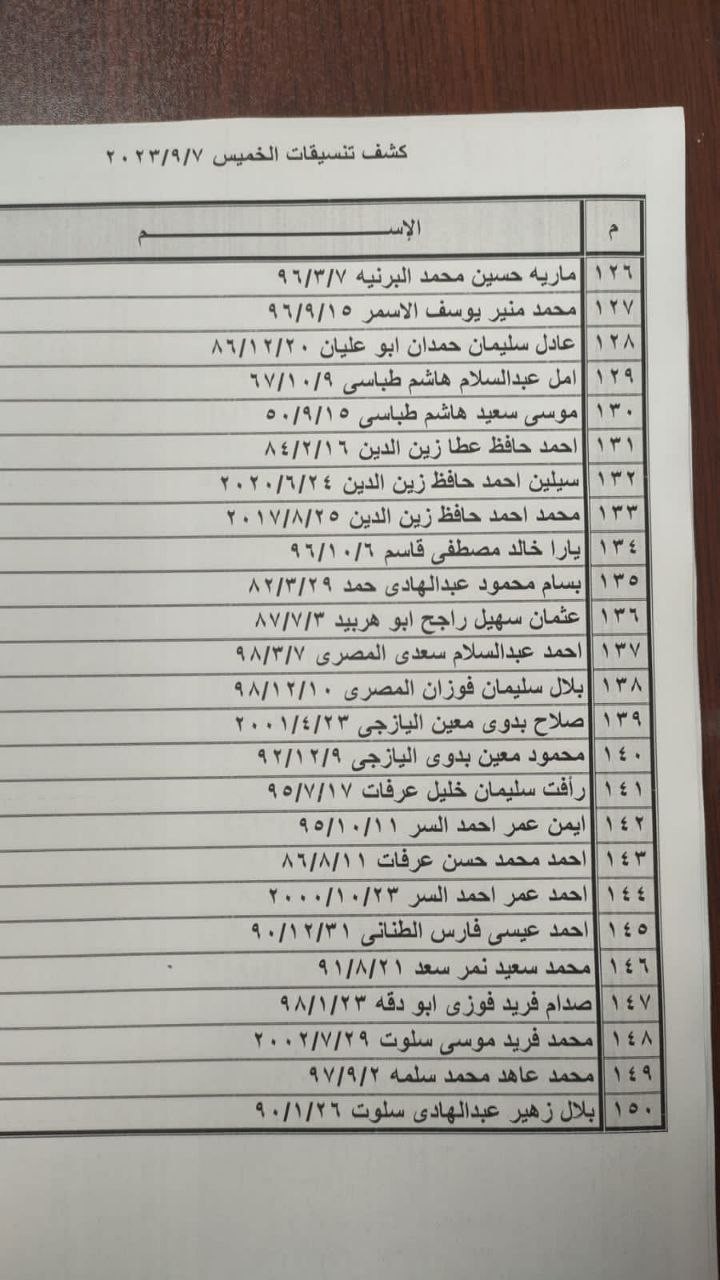 كشف تنسيقات الخميس ٢٠٢٣/٩/٧
م الإســــــــــــم
١٢٦ ماريه حسين محمد البرنيه ٩٦/٣/٧
١٢٧ محمد منير يوسف الاسمر ٩٦/٩/١٥
١٢٨ عادل سليمان حمدان ابو عليان ٨٦/١٢/٢٠
١٢٩ امل عبدالسلام هاشم طباسى ٦٧/١٠/٩
١٣٠ موسى سعيد هاشم طباسى ٥٠/٩/١٥
١٣١ احمد حافظ عطا زين الدين ٨٤/٢/١٦
١٣٢ سيلين احمد حافظ زين الدين ٢٠٢٠/٦/٢٤
١٣٣ محمد احمد حافظ زين الدين ٢٠١٧/٨/٢٥
١٣٤ يارا خالد مصطفى قاسم ٩٦/١٠/٦
١٣٥ بسام محمود عبدالهادى حمد ٨٢/٣/٢٩
١٣٦ عثمان سهيل راجح ابو هربيد ٨٧/٧/٣
١٣٧ احمد عبدالسلام سعدى المصرى ٩٨/٣/٧
١٣٨ بلال سليمان فوزان المصرى ٩٨/١٢/١٠
١٣٩ صلاح بدوى معين اليازجى ٢٠٠١/٤/٢٣
١٤٠ محمود معين بدوى اليازجى ٩٢/١٢/٩
١٤١ رأفت سليمان خليل عرفات ٩٥/٧/١٧
١٤٢ ايمن عمر احمد السر ٩٥/١٠/١١
١٤٣ احمد محمد حسن عرفات ٨٦/٨/١١
١٤٤ احمد عمر احمد السر ٢٠٠٠/١٠/٢٣
١٤٥ احمد عيسى فارس الطنانى ٩٠/١٢/٣١
١٤٦ محمد سعيد نمر سعد ٩١/٨/٢١
١٤٧ صدام فريد فوزى ابو دقه ٩٨/١/٢٣
١٤٨ محمد فريد موسى سلوت ٢٠٠٢/٧/٢٩
١٤٩ محمد عاهد محمد سلمه ٩٧/٩/٢
١٥٠ بلال زهير عبدالهادى سلوت ٩٠/١/٢٦